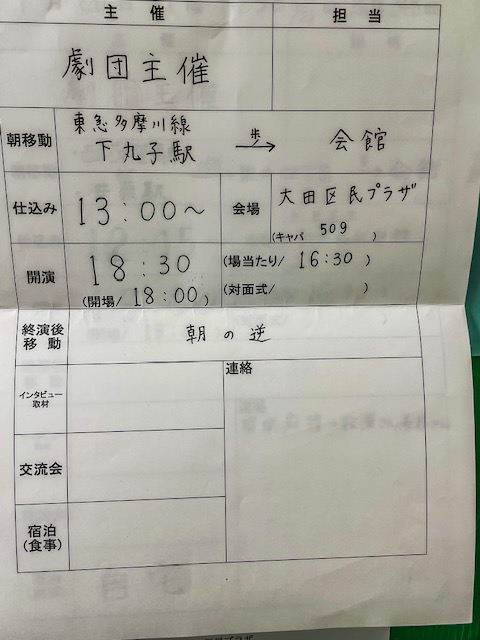 主催 担当
劇団主催
朝移動 東急多摩川線
下丸子駅 歩→ 会館
仕込み 13:00〜 会場 大田区民プラザ
(キャパ 509 )
開演 18:30 (場当たり/ 16:30 )
(開場/ 18:00 ) (対面式/ )
終演後
移動 朝の逆
インタビュー
取材
連絡
交流会
宿泊
(食事)